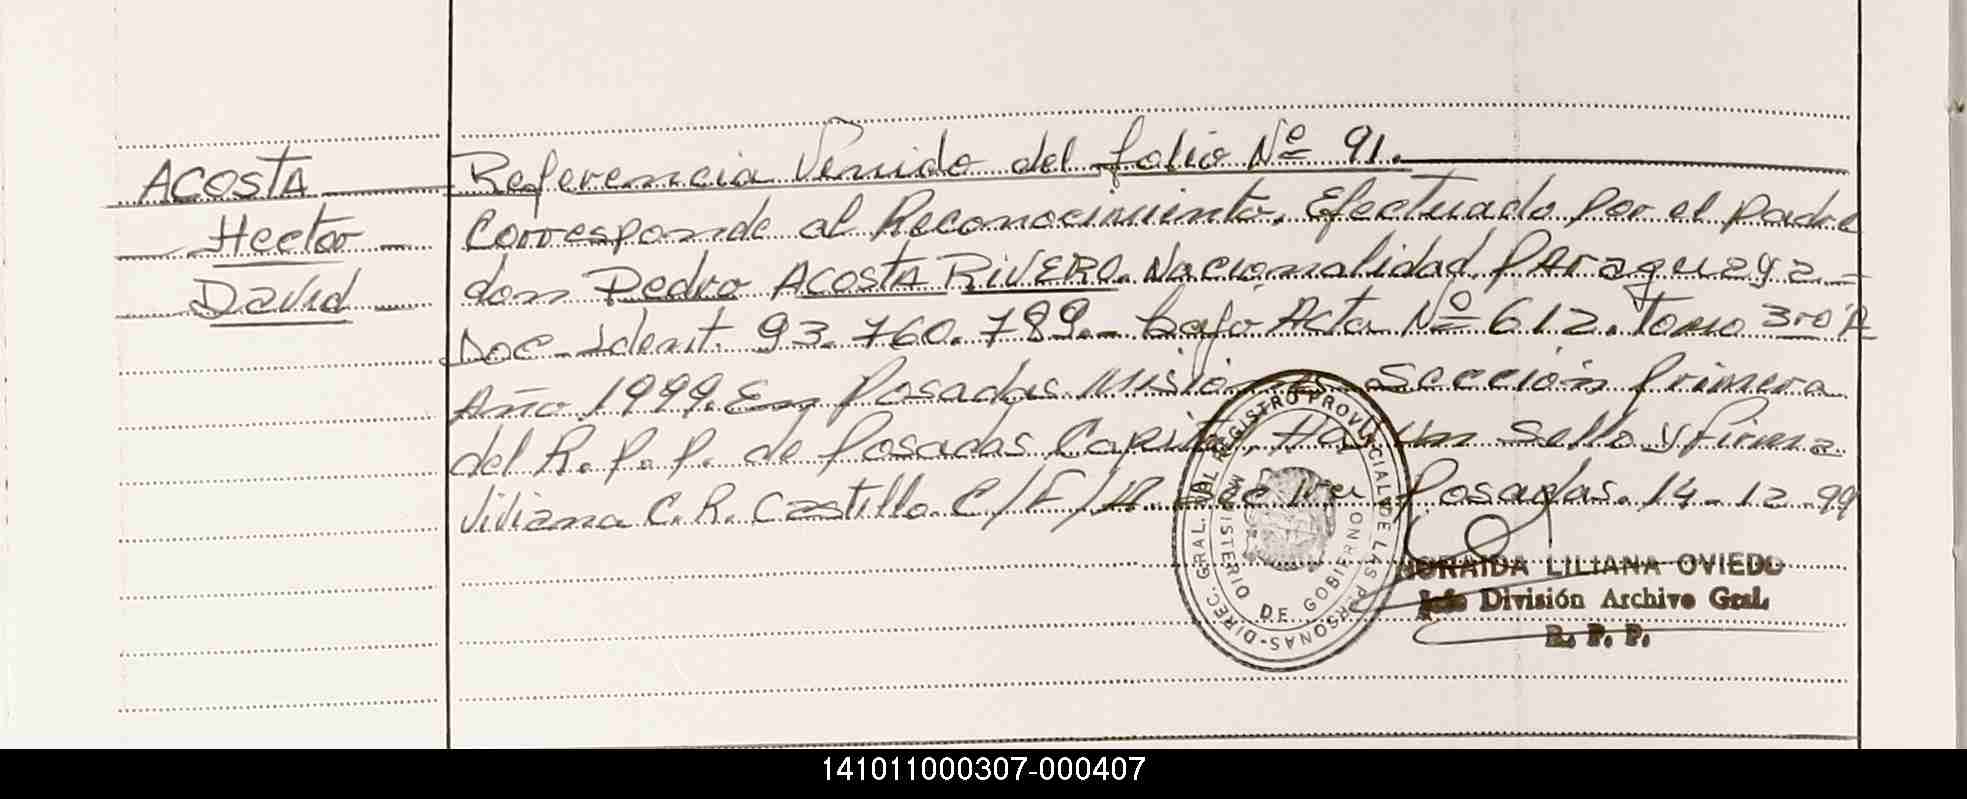 ACOSTA
Hector
David
Referencia Venido del folio Nº 91.
Corresponde al Reconocimiento. Efectuado Por el padre
don Pedro ACOSTA RIVERO. Nacionalidad Paraguaya -
Doc. Ident. 93.760.789.- bajo Acta Nº 612. Tomo 3roA
Año 1999. En Posadas Misiones. Sección Primera
del R. P. P. de Posadas Capital. Hay Un sello y firma
Viviana C. R. Castillo. C/F/ Posadas. 14-12-99
DIREC. GRAL. DEL REGISTRO PROVINCIAL DE LAS PERSONAS-
MINISTERIO DE GOBIERNO
NORAIDA LILIANA OVIEDO
Jefe División Archivo Gral.
R. P. P.
141011000307-000407